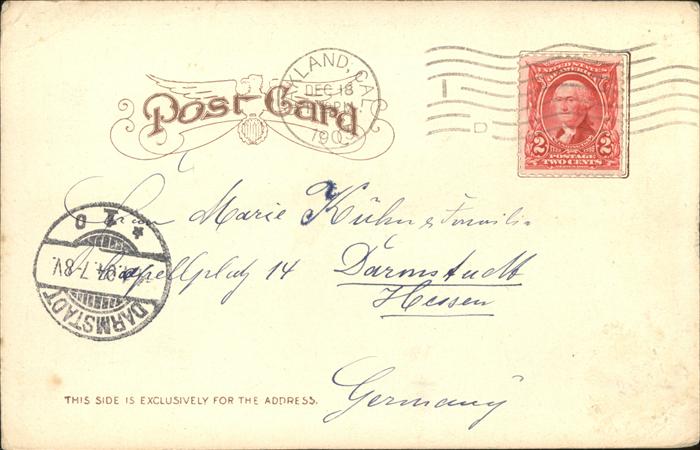 Post Card
KLAND, CAL.
DEC 18
PM
190
D
UNITED STATES
OF AMERICA
2 2
POSTAGE
TWO CENTS
Frau Marie Kühn & Familie
Kapellplatz 14 Darmstadt
Hessen
Germany
DARMSTADT
7-8V.
THIS SIDE IS EXCLUSIVELY FOR THE ADDRESS.